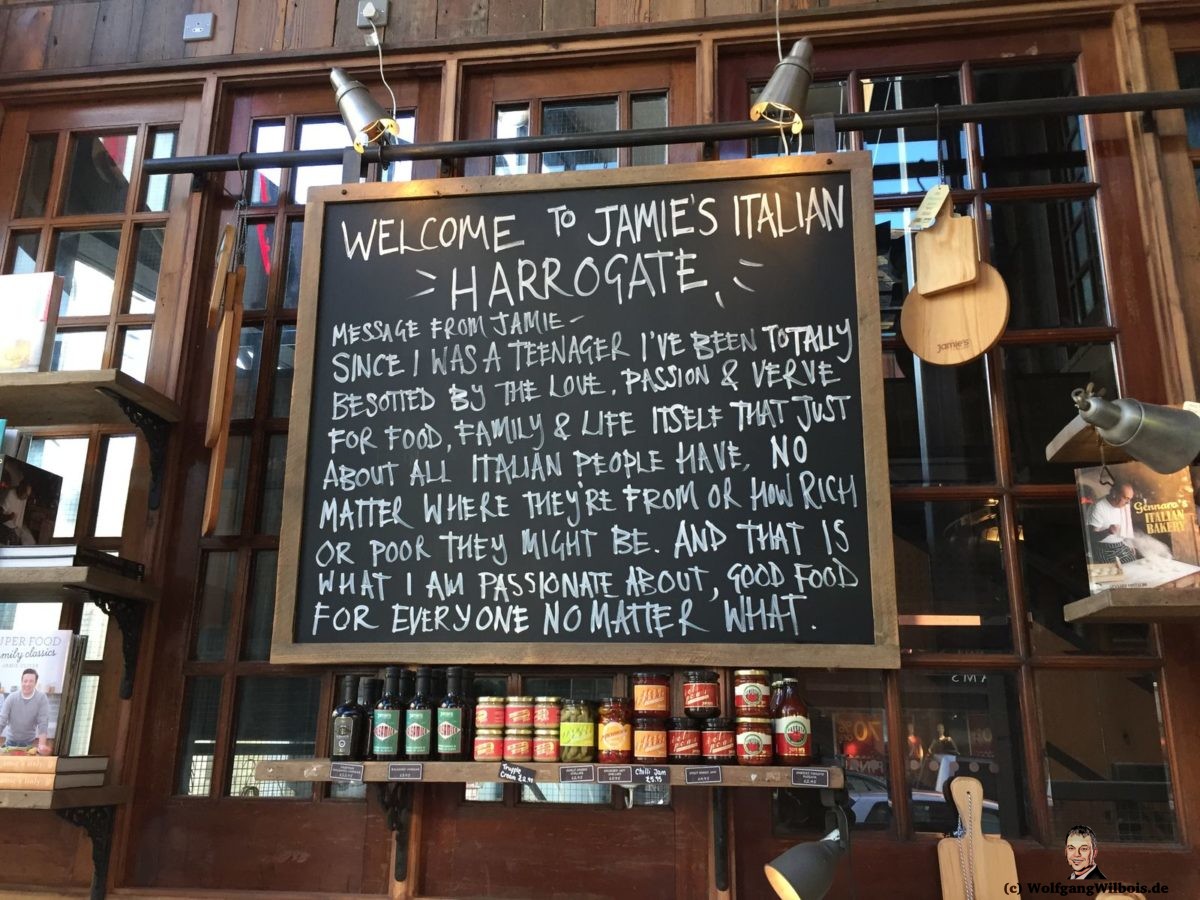 WELCOME TO JAMIE'S ITALIAN
HARROGATE
MESSAGE FROM JAMIE -
SINCE I WAS A TEENAGER I'VE BEEN TOTALLY
BESOTTED BY THE LOVE, PASSION & VERVE
FOR FOOD, FAMILY & LIFE ITSELF THAT JUST
ABOUT ALL ITALIAN PEOPLE HAVE, NO
MATTER WHERE THEY'RE FROM OR HOW RICH
OR POOR THEY MIGHT BE. AND THAT IS
WHAT I AM PASSIONATE ABOUT, GOOD FOOD
FOR EVERYONE NO MATTER WHAT.
jamie's
Gennaro's
ITALIAN
BAKERY
UPER FOOD
mily classics
JAMIE OLIVER
Truffle
Cream £2.95
Chilli Jam
£5.95
70%
(c) WolfgangWilbois.de